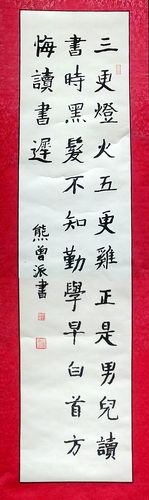 三更燈火五更雞正是男兒讀
書時黑髮不知勤學早白首方
悔讀書遲
熊曾派書